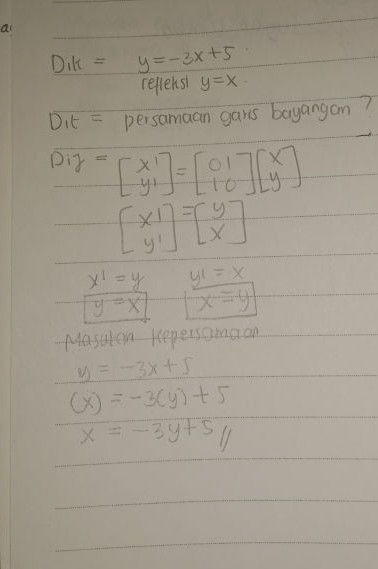 a.
Dik = y = -3x + 5
refleksi y = x.
Dit = persamaan garis bayangan ?
Dij = [x' y'] = [0 1 1 0] [x y]
[x' y'] = [y x]
x' = y y' = x
y = x x = y
Masukan kepersamaan
y = -3x + 5
(x) = -3(y) + 5
x = -3y + 5 //